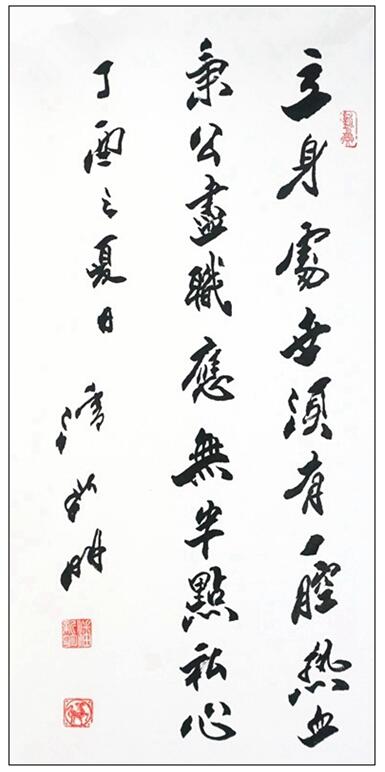 立身處世須有一腔热血
秉公盡職應無半點私心
丁酉之夏日